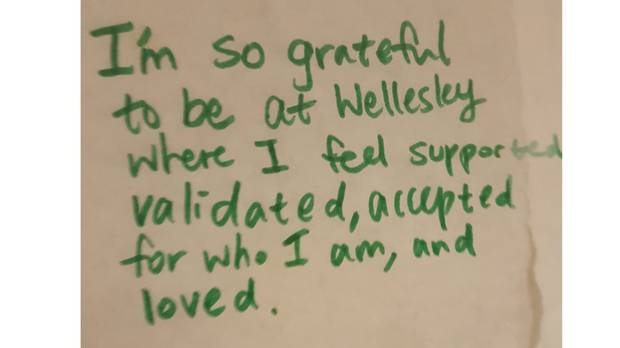 I'm so grateful
to be at Wellesley
where I feel supported
validated, accepted
for who I am, and
loved.